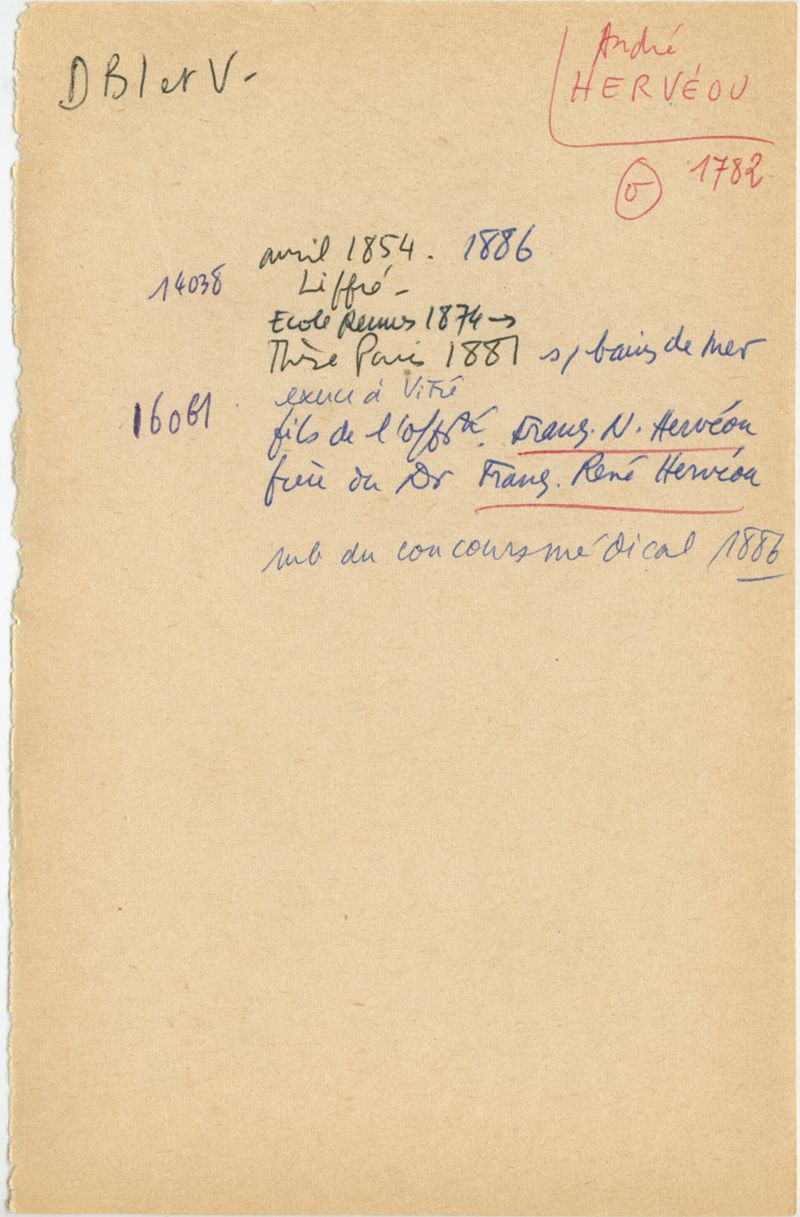 D B I et V -
André
HERVÉOU
1782
avril 1854. 1886
14038 Liffré -
Ecole Rennes 1874 →
Thèse Paris 1881 s/ bains de mer
exerce à Vitré
16061 fils de l'off. Franç. N. Hervéou
frère du Dr Franç. René Hervéou
mb du concours médical 1886